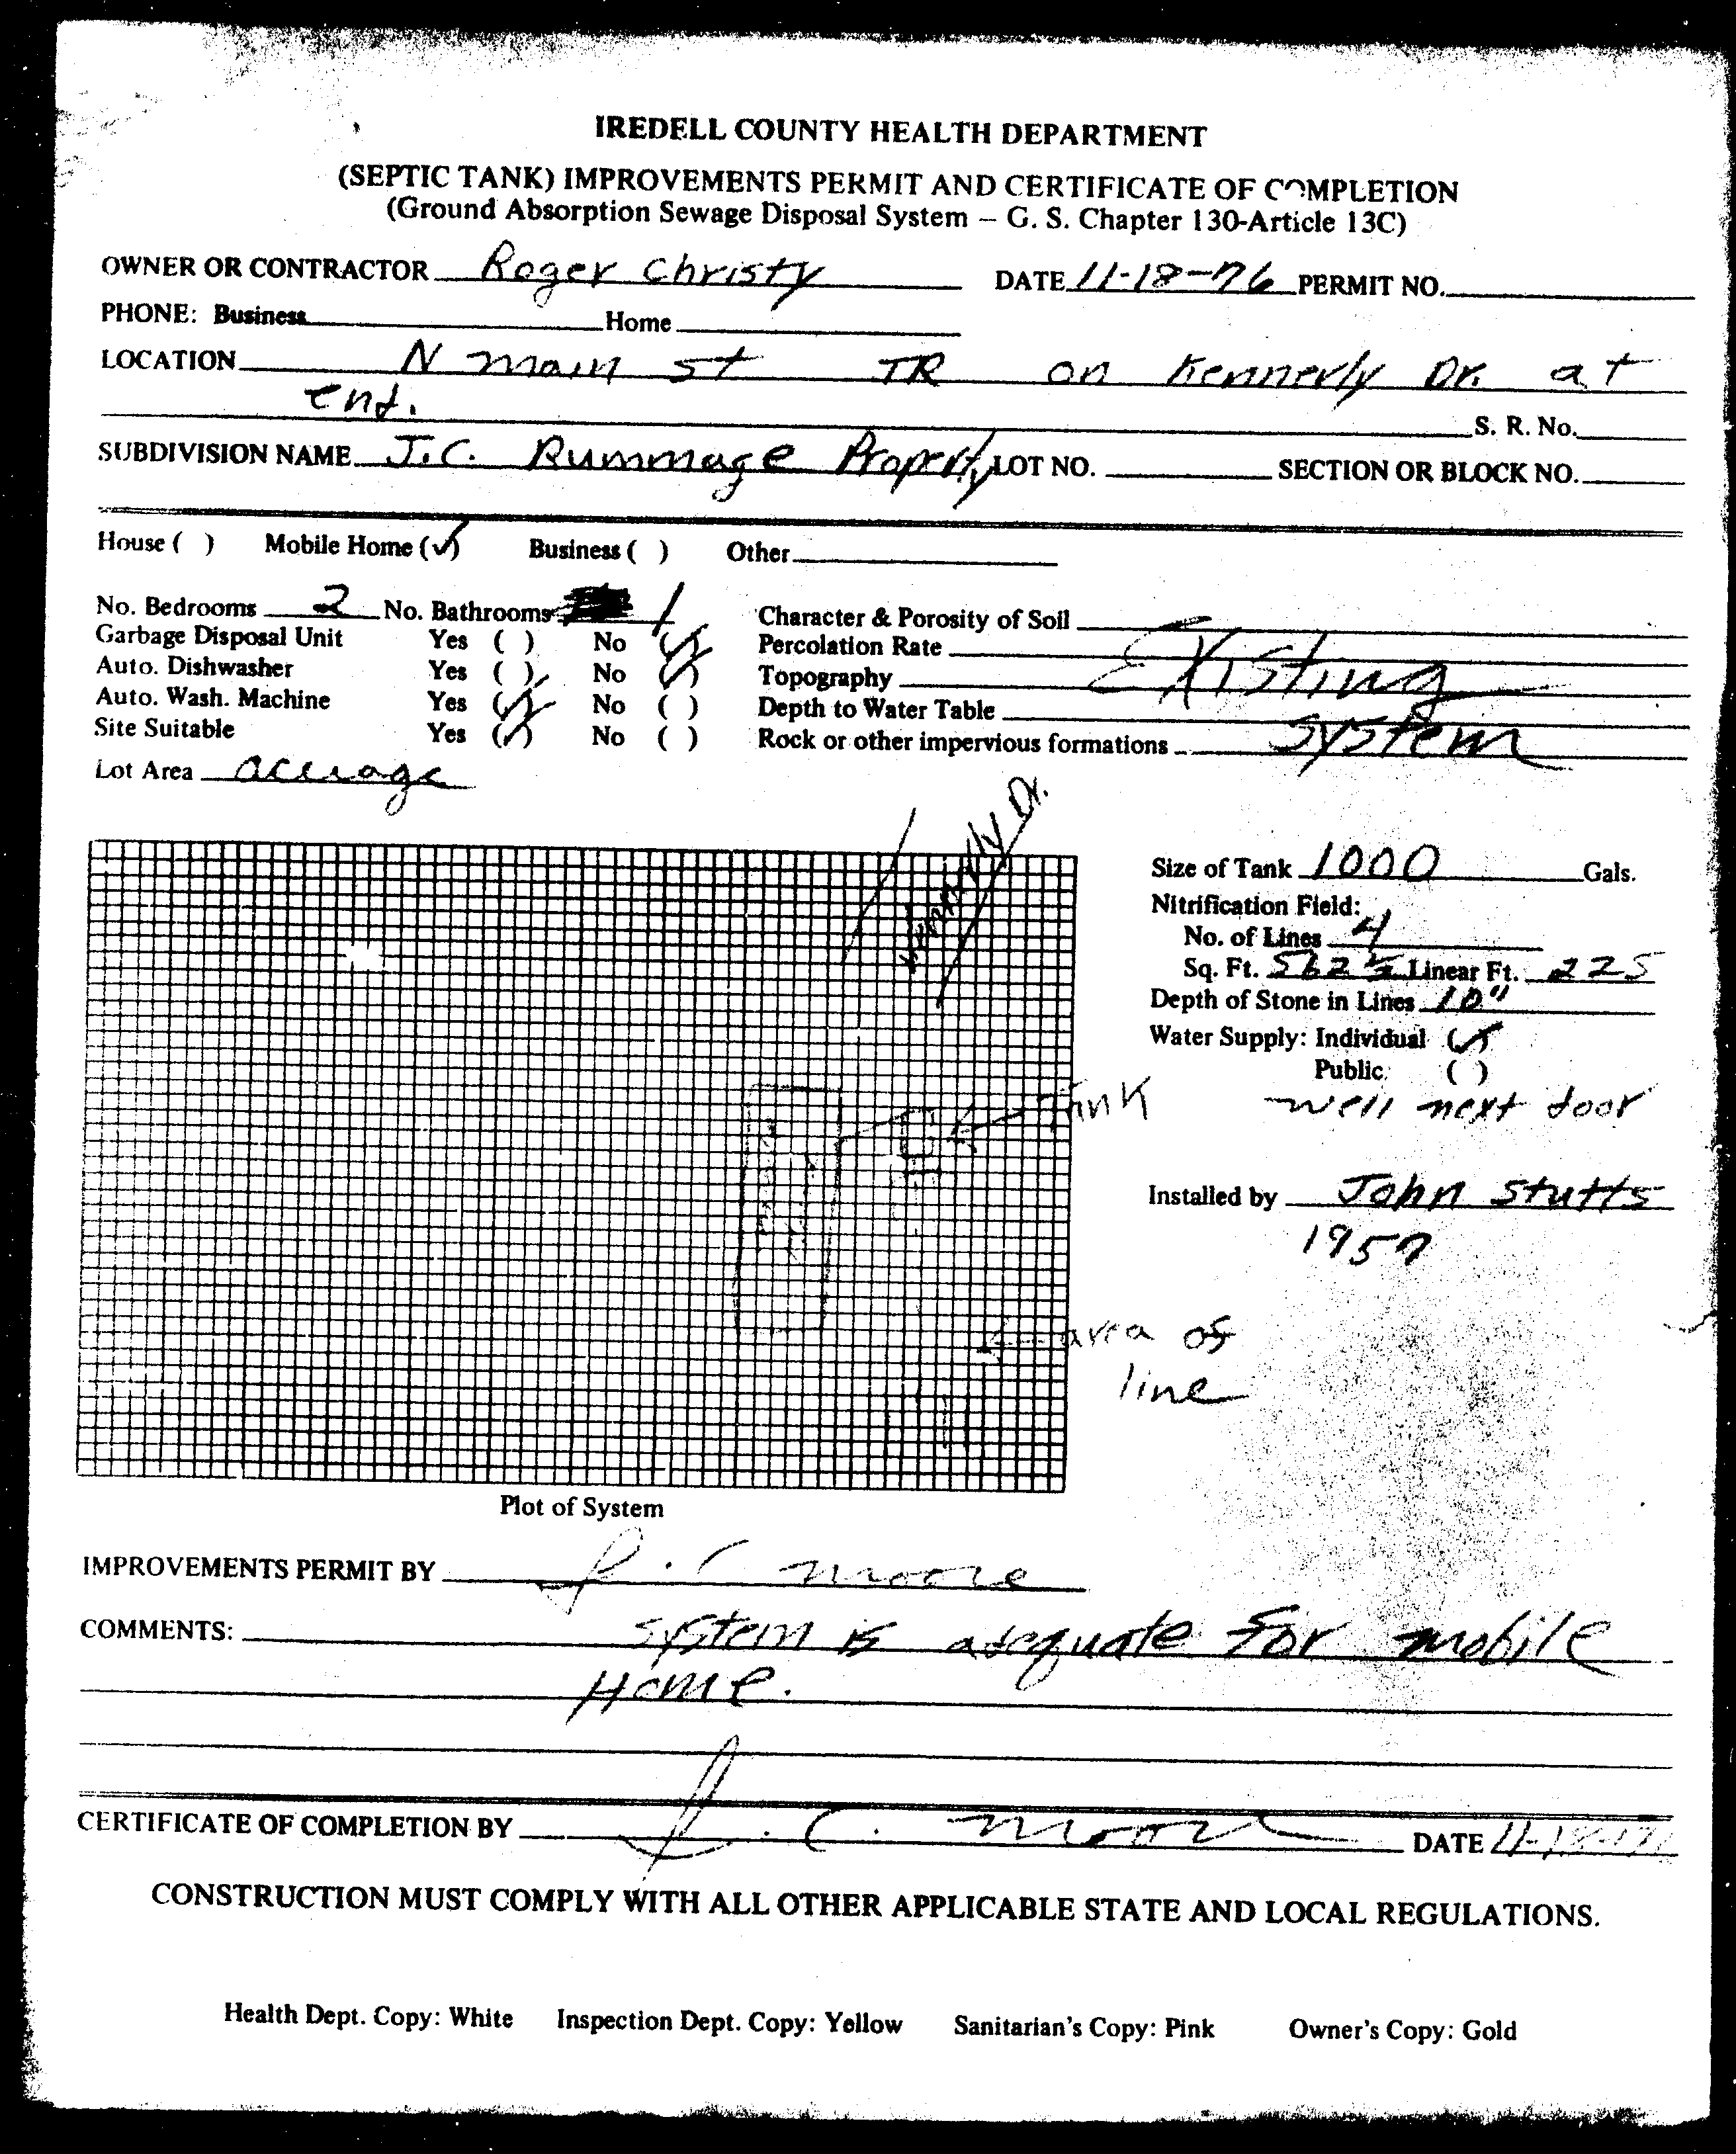 IREDELL COUNTY HEALTH DEPARTMENT
(SEPTIC TANK) IMPROVEMENTS PERMIT AND CERTIFICATE OF COMPLETION
(Ground Absorption Sewage Disposal System – G. S. Chapter 130-Article 13C)
OWNER OR CONTRACTOR Roger Christy DATE 11-18-76 PERMIT NO.
PHONE: Business Home
LOCATION N main st TR on Kennerly Dr. at
end. S. R. No.
SUBDIVISION NAME J.C. Rummage Property LOT NO. SECTION OR BLOCK NO.
House ( ) Mobile Home (✓) Business ( ) Other
No. Bedrooms 2 No. Bathrooms 1 Character & Porosity of Soil
Garbage Disposal Unit Yes ( ) No (✓) Percolation Rate Existing
Auto. Dishwasher Yes ( ) No (✓) Topography
Auto. Wash. Machine Yes (✓) No ( ) Depth to Water Table
Site Suitable Yes (✓) No ( ) Rock or other impervious formations system
Lot Area acerage
Kennerly Dr.
Size of Tank 1000 Gals.
Nitrification Field:
No. of Lines 4
Sq. Ft. 562 ½ Linear Ft. 225
Depth of Stone in Lines 10"
Water Supply: Individual (✓)
Public ( )
Tank well next door
Installed by John Stutts
1957
area of
line
Plot of System
IMPROVEMENTS PERMIT BY J. C moore
COMMENTS: system is adequate for mobile
Home.
CERTIFICATE OF COMPLETION BY J. C. Moore DATE 11-18-76
CONSTRUCTION MUST COMPLY WITH ALL OTHER APPLICABLE STATE AND LOCAL REGULATIONS.
Health Dept. Copy: White Inspection Dept. Copy: Yellow Sanitarian's Copy: Pink Owner's Copy: Gold